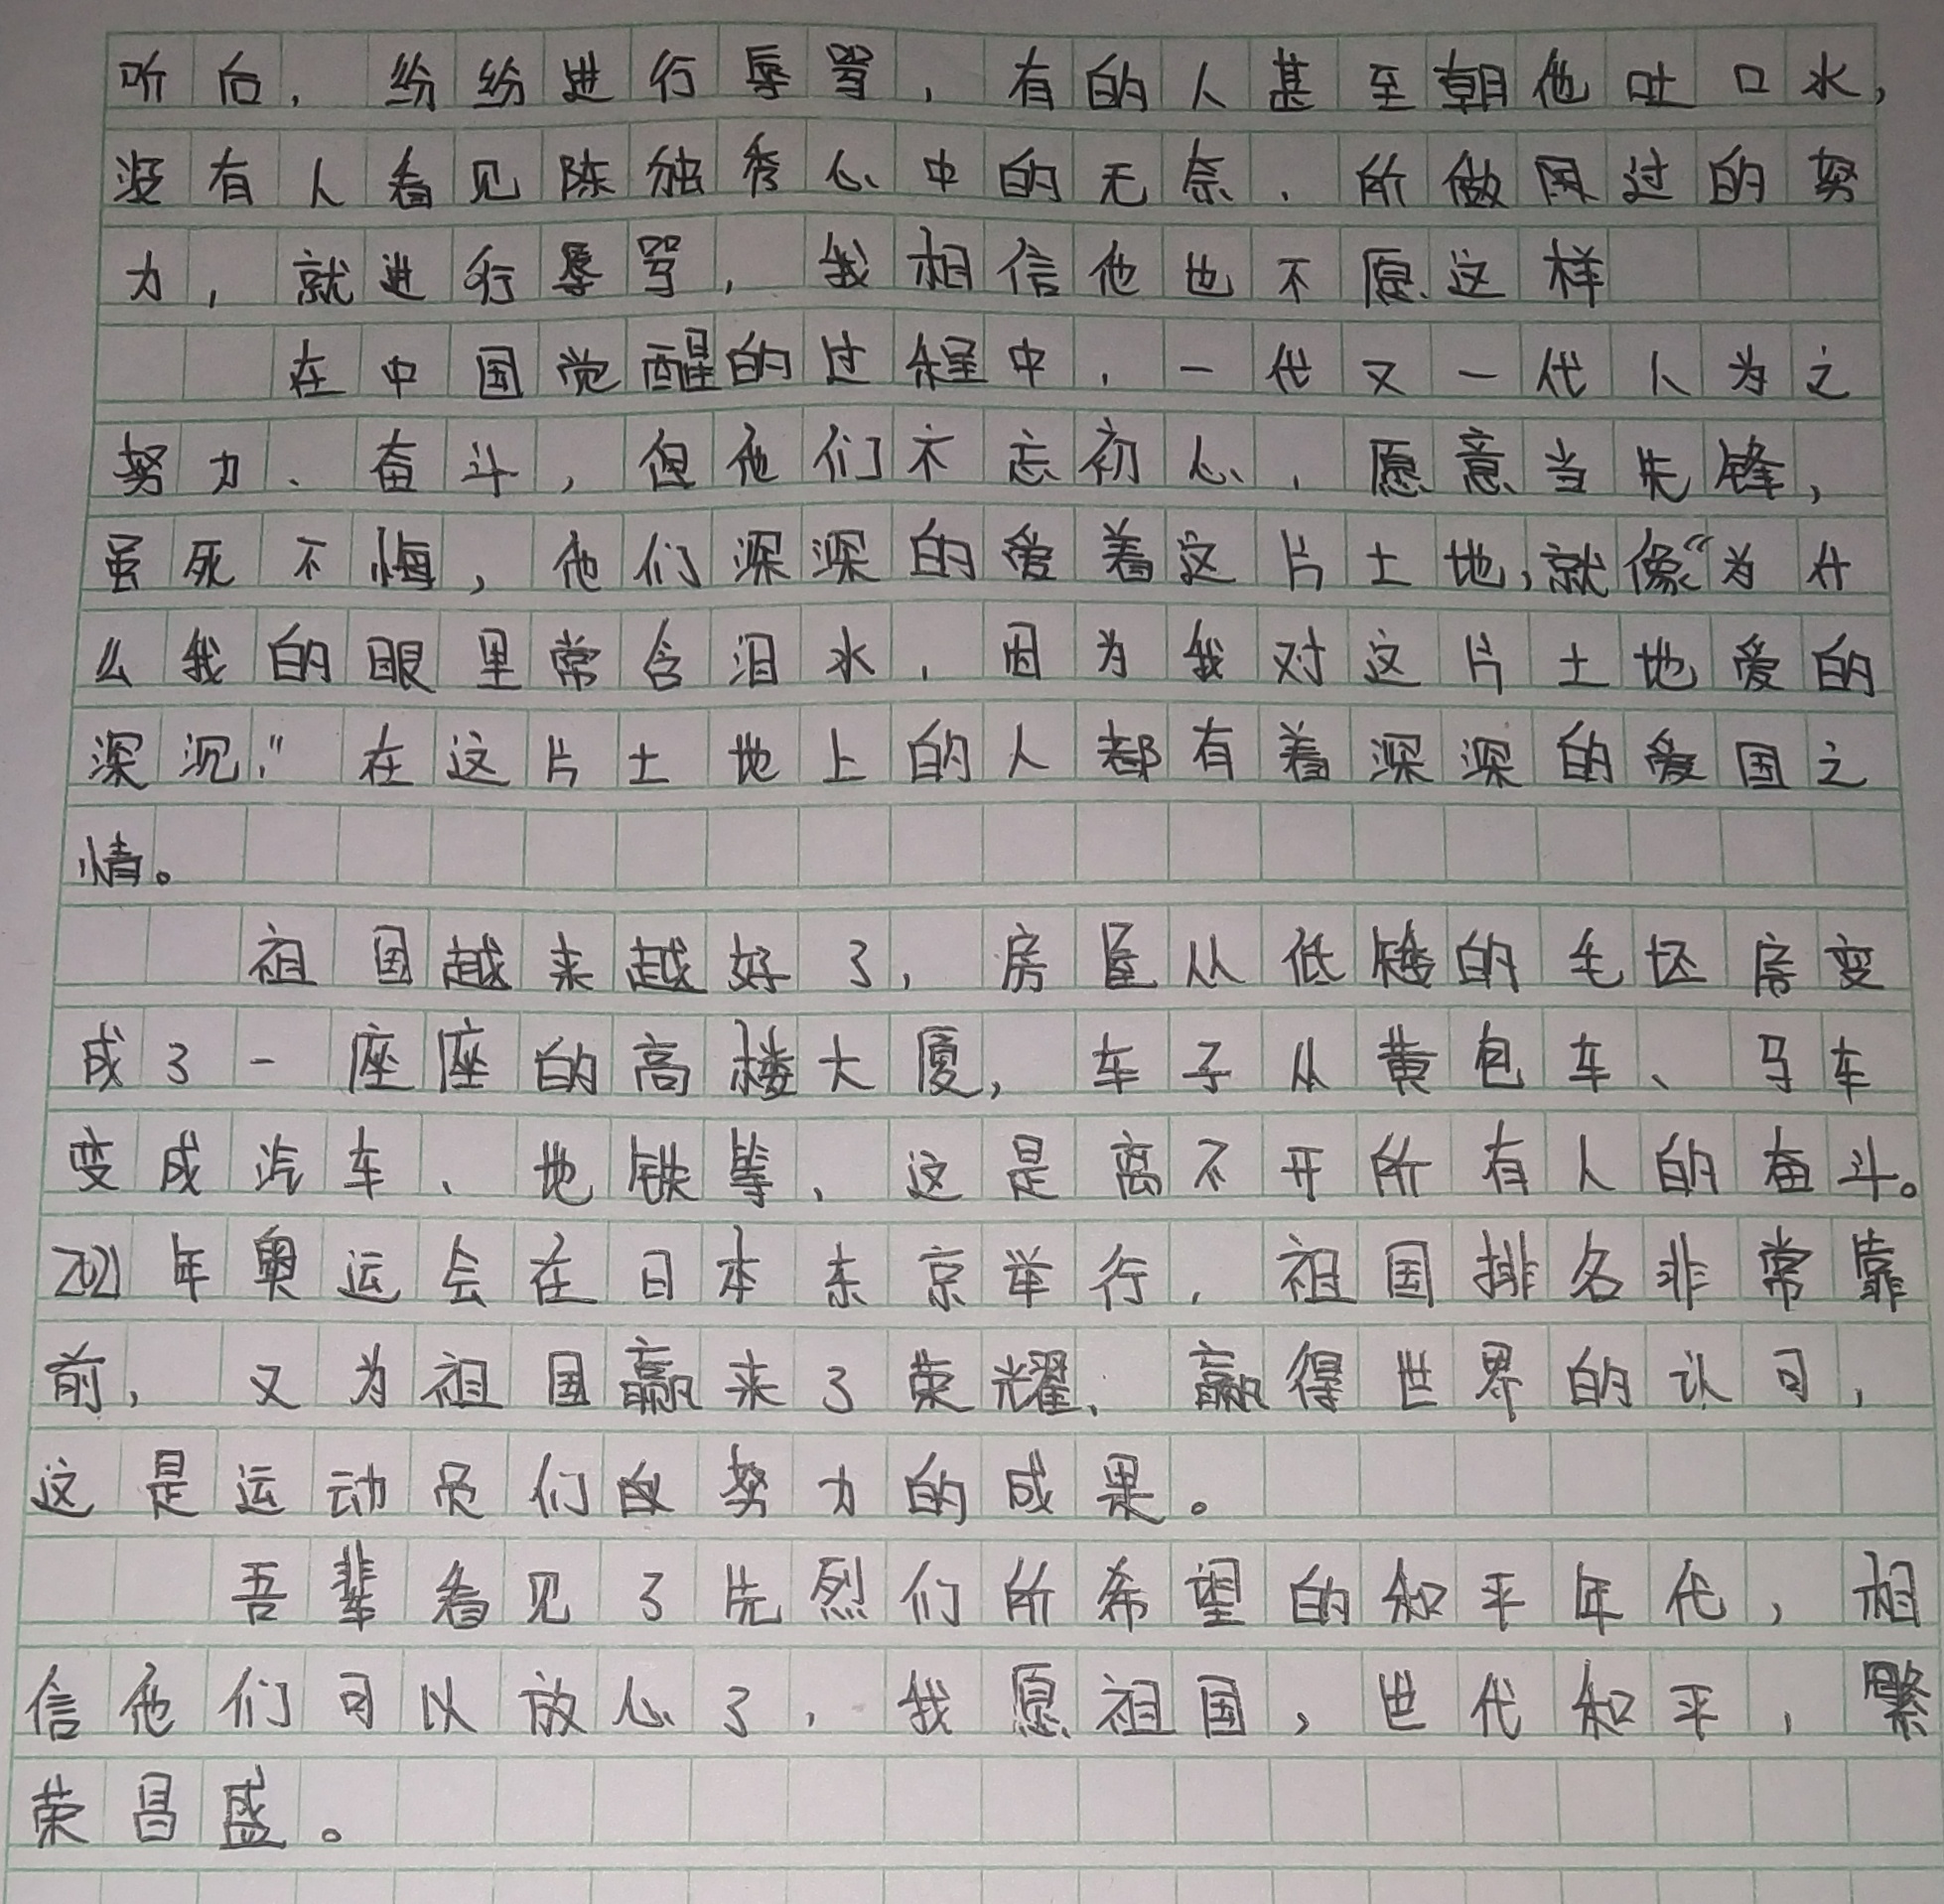 听后，纷纷进行辱骂，有的人甚至朝他吐口水，
没有人看见陈独秀心中的无奈，所做过的努
力，就进行辱骂，我相信他也不愿这样
在中国觉醒的过程中，一代又一代人为之
努力、奋斗，但他们不忘初心，愿意当先锋，
虽死不悔，他们深深的爱着这片土地，就像“为什
么我的眼里常含泪水，因为我对这片土地爱的
深沉！”在这片土地上的人都有着深深的爱国之
情。
祖国越来越好了，房屋从低矮的毛坯房变
成了一座座的高楼大厦，车子从黄包车、马车
变成汽车、地铁等，这是离不开所有人的奋斗。
2021年奥运会在日本东京举行，祖国排名非常靠
前，又为祖国赢来了荣耀，赢得世界的认可，
这是运动员们的努力的成果。
吾辈看见了先烈们所希望的和平年代，相
信他们可以放心了，我愿祖国，世代和平，繁
荣昌盛。